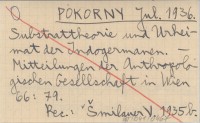 O POKORNY Jul. 1936.
Substrattheorie und Urhei-
mat der Indogermanen. —
Mitteilungen der Anthropolo-
gischen Gesellschaft in Wien
66: 79.
Rec.: Šmilauer V. 1935b.